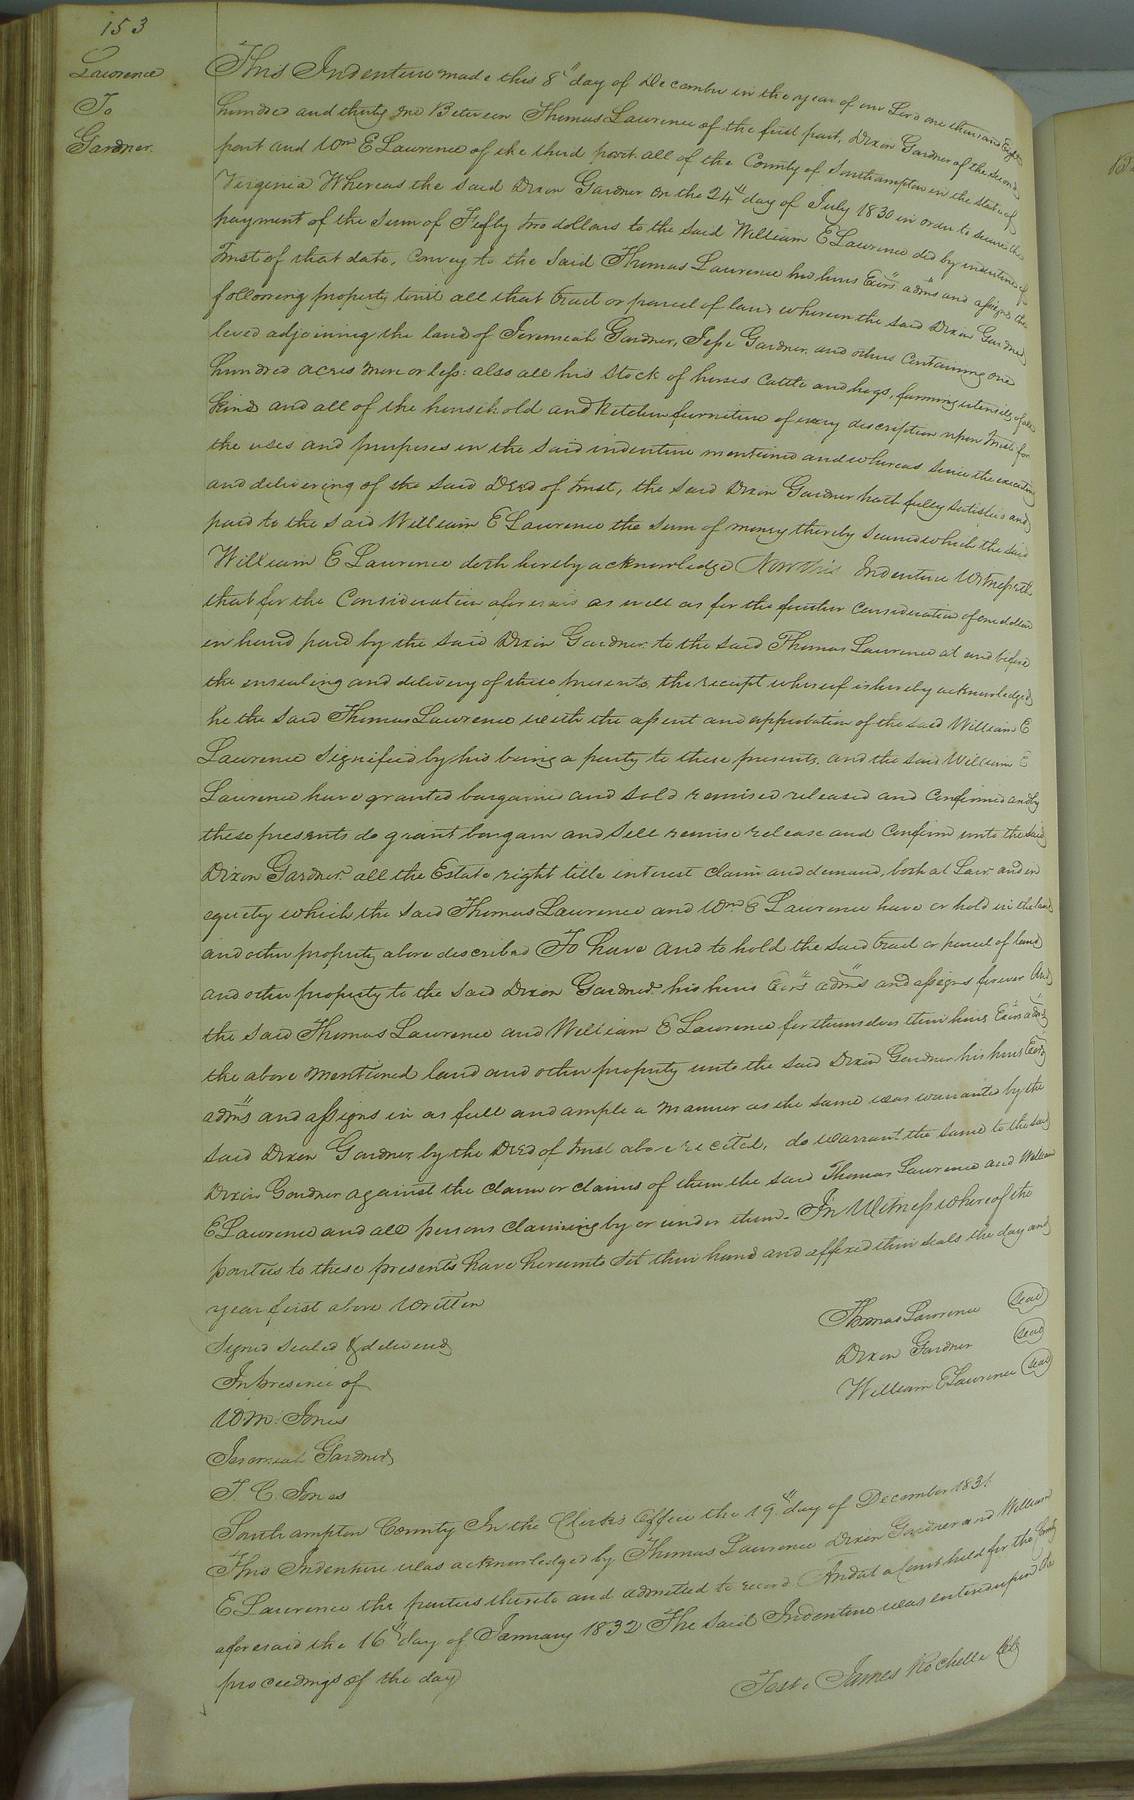 153
Lawrence
To
Gardner.
This Indenture made this 8th day of December in the year of our Lord one thousand Eight
hundred and thirty one Between Thomas Lawrence of the first part, Dixon Gardner of the second
part and Wm E Lawrence of the third part all of the County of Southampton in the state of
Virginia Whereas the said Dixon Gardner on the 24th day of July 1830 in order to secure the
payment of the sum of Fifty two dollars to the said William E Lawrence did by indenture of
Trust of that date, convey to the said Thomas Lawrence his heirs Exors adms and assigns the
following property towit all that tract or parcel of land whereon the said Dixon Gardner
lived adjoining the land of Jeremiah Gardner, Jesse Gardner, and others containing one
hundred acres more or less: also all his stock of horses cattle and hogs, farming utensils of all
kind and all of the household and Kitchen furniture of every description upon trust for
the uses and purposes in the said indenture mentioned and whereas since the executing
and delivering of the said Deed of trust, the said Dixon Gardner hath fully satisfied and
paid to the said William E Lawrence the sum of money thereby secured which the said
William E Lawrence doth hereby acknowledge Now this Indenture Witnesseth
that for the Consideration aforesaid as well as for the further consideration of one dollar
in hand paid by the said Dixon Gardner to the said Thomas Lawrence at and before
the ensealing and delivery of these presents, the receipt whereof is hereby acknowledged
he the said Thomas Lawrence with the assent and approbation of the said William E
Lawrence signified by his being a party to these presents, and the said William E
Lawrence have granted bargained and sold remised released and confirmed and by
these presents do grant bargain and sell remise release and confirm unto the said
Dixon Gardner all the Estate right title interest claim and demand, both at Law and in
equity which the said Thomas Lawrence and Wm E Lawrence have or hold in the land
and other property above described To have and to hold the said tract or parcel of land
and other property to the said Dixon Gardner his heirs Exors adms and assigns forever And
the said Thomas Lawrence and William E Lawrence for themselves their heirs Exors adms
the above mentioned land and other property unto the said Dixon Gardner his heirs Exors
adms and assigns in as full and ample a manner as the same was warranted by the
said Dixon Gardner, by the Deed of trust above recited, do warrant the same to the said
Dixon Gardner against the claim or claims of them the said Thomas Lawrence and William
E Lawrence and all persons claiming by or under them. In Witness whereof the
parties to these presents have hereunto set their hand and affixed their seals the day and
year first above written
Thomas Lawrence seal
Signed sealed & delivered
Dixon Gardner seal
In presence of
William E Lawrence seal
Wm: Jones
Jeremiah Gardner
T. C. Jones
Southampton County In the Clerk's Office the 19th day of December 1831.
This Indenture was acknowledged by Thomas Lawrence Dixon Gardner and William
E Lawrence the parties thereto and admitted to record And at a Court held for the County
aforesaid the 16th day of January 1832 The said Indenture was entered upon the
proceedings of the day
Teste James Rochelle Clk